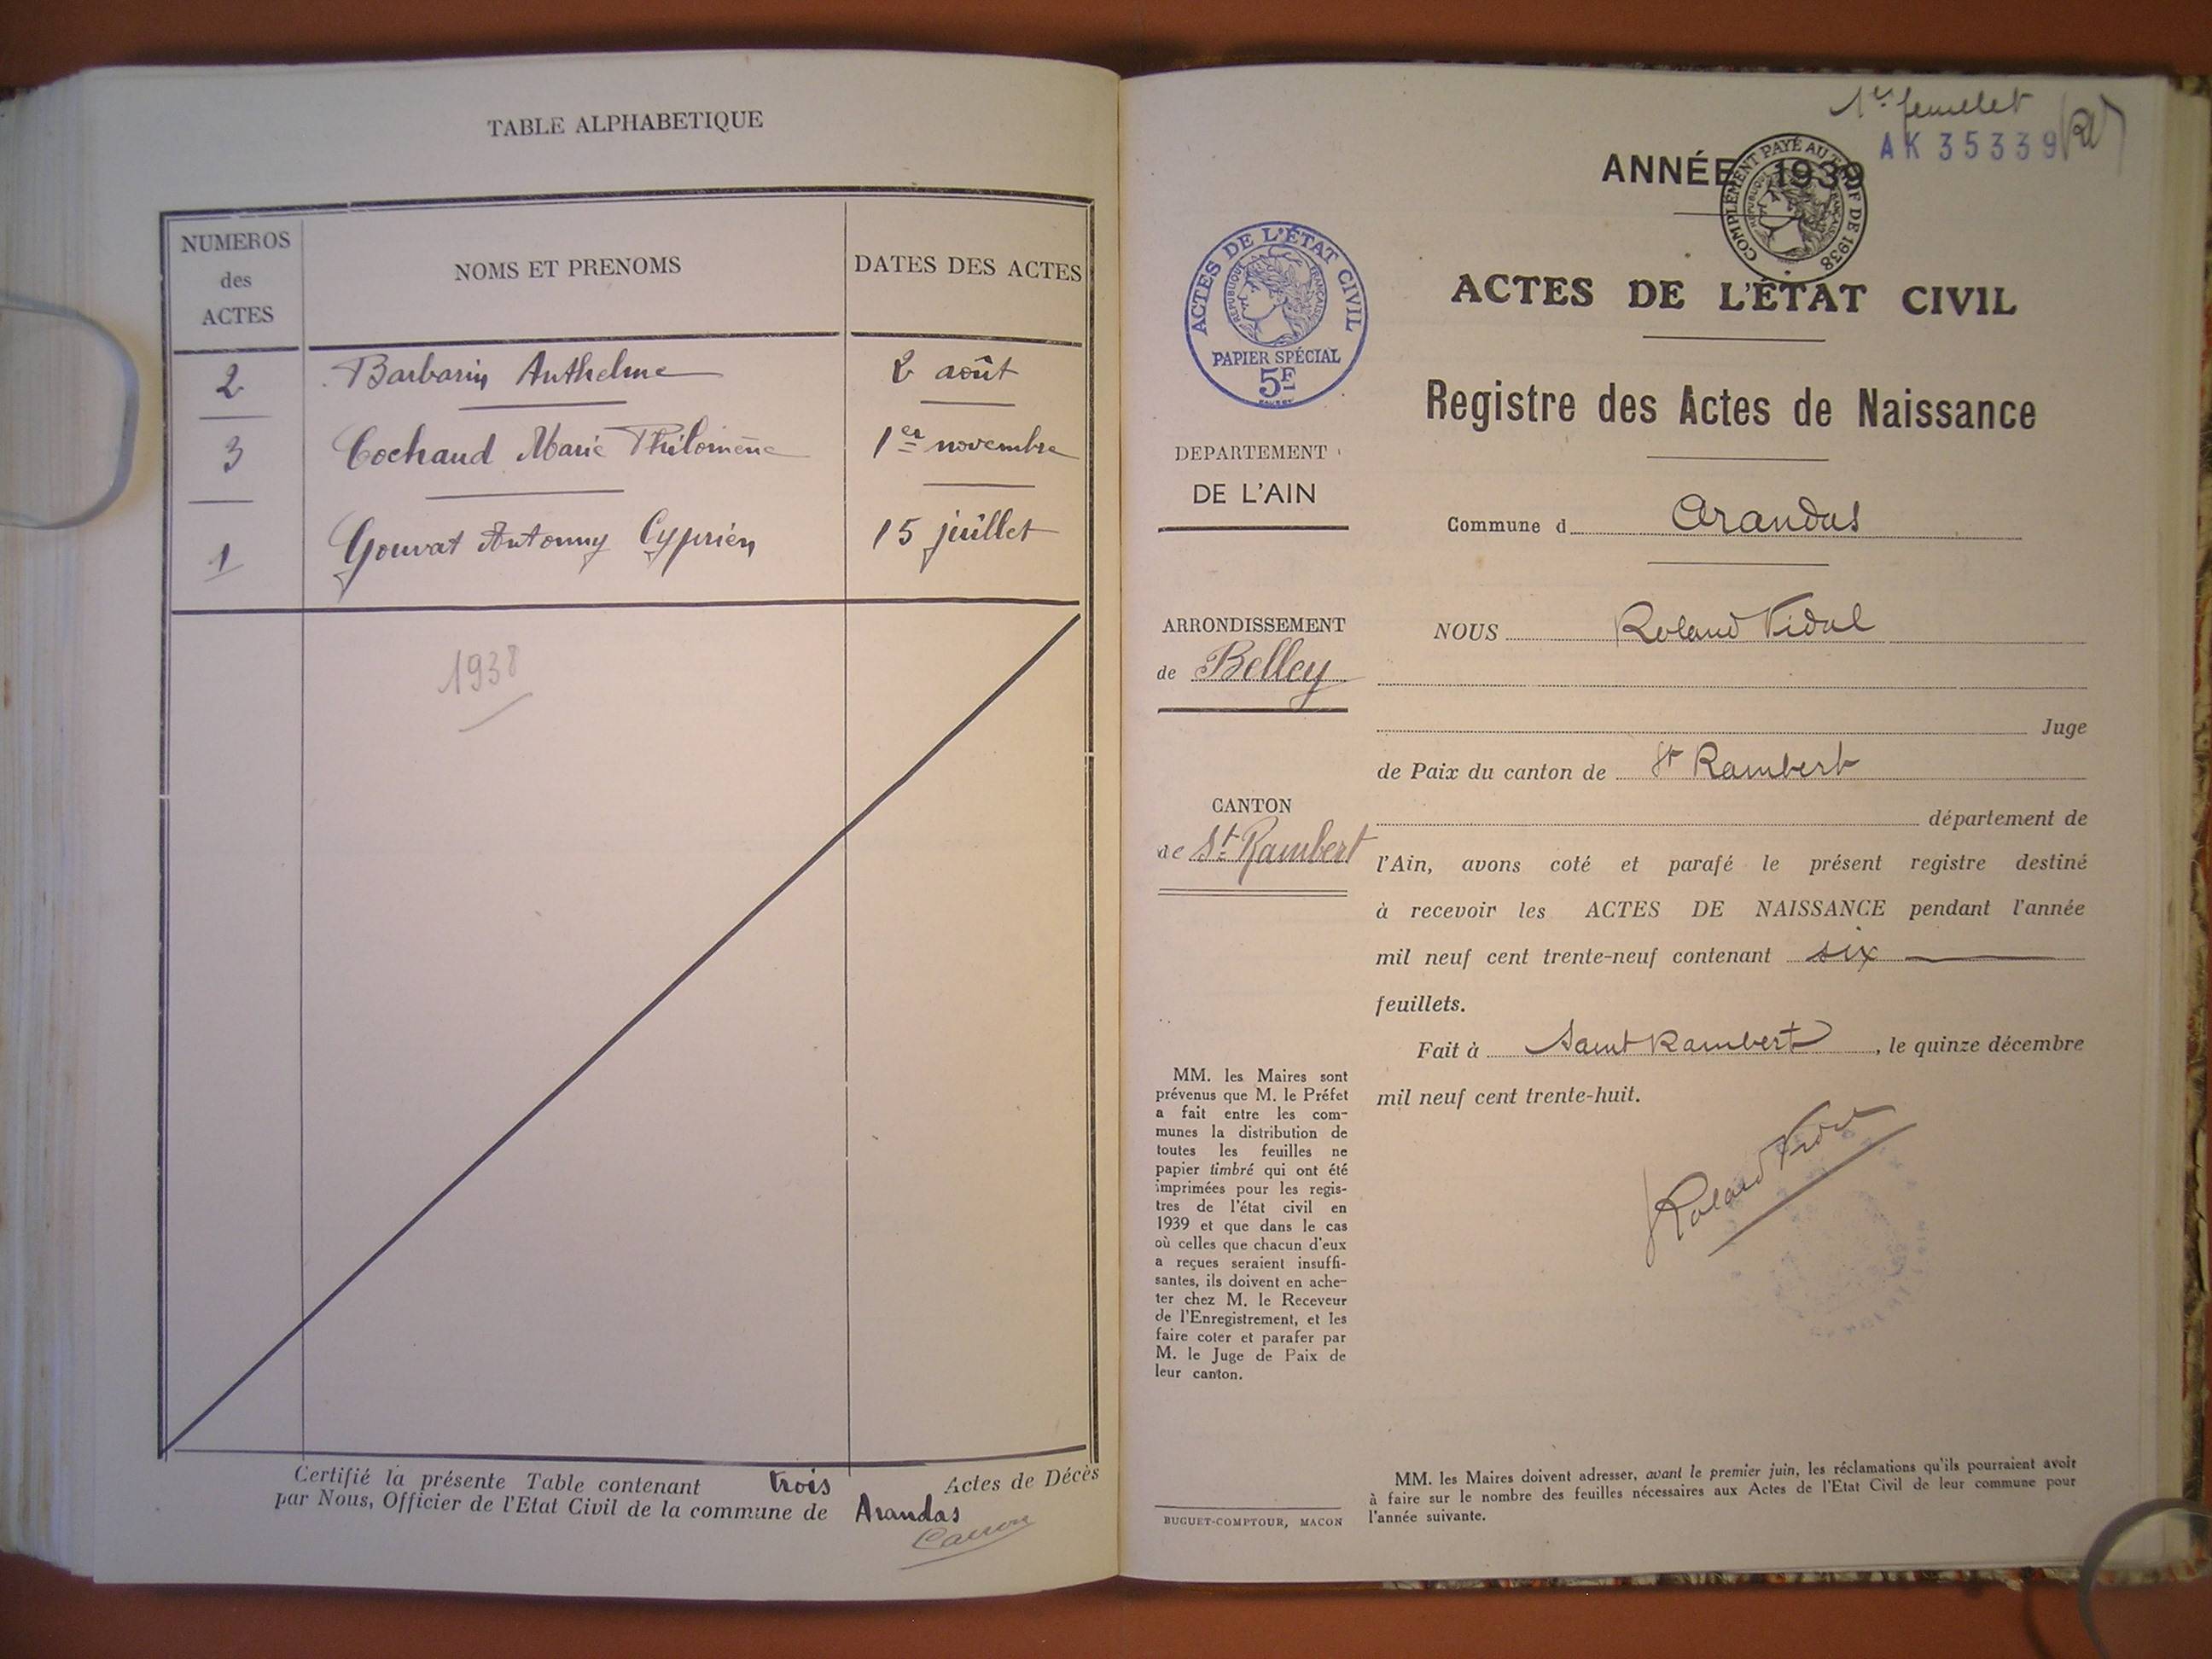 TABLE ALPHABETIQUE
NUMEROS
des
ACTES
NOMS ET PRENOMS
DATES DES ACTES
2 Barbarin Anthelme 2 août
3 Cochaud Marie Philomène 1er novembre
1 Gouvat Antonny Cyprien 15 juillet
1938
Certifié la présente Table contenant trois Actes de Décès
par Nous, Officier de l'Etat Civil de la commune de Arandas
1er feuillet
AK 35339
ANNÉE 1939
COMPLÉMENT PAYÉ AU TARIF DE 1938
ACTES DE L'ÉTAT CIVIL
RÉPUBLIQUE FRANÇAISE
PAPIER SPÉCIAL
5F
DEPARTEMENT
DE L'AIN
ARRONDISSEMENT
de Belley
CANTON
de St Rambert
MM. les Maires sont
prévenus que M. le Préfet
a fait entre les com-
munes la distribution de
toutes les feuilles ne
papier timbré qui ont été
imprimées pour les regis-
tres de l'état civil en
1939 et que dans le cas
où celles que chacun d'eux
a reçues seraient insuffi-
santes, ils doivent en ache-
ter chez M. le Receveur
de l'Enregistrement, et les
faire coter et parafer par
M. le Juge de Paix de
leur canton.
BUGUET-COMPTOUR, MACON
ACTES DE L'ÉTAT CIVIL
Registre des Actes de Naissance
Commune d Arandas
NOUS Roland Vidal
Juge
de Paix du canton de St Rambert
département de
l'Ain, avons coté et parafé le présent registre destiné
à recevoir les ACTES DE NAISSANCE pendant l'année
mil neuf cent trente-neuf contenant six
feuillets.
Fait à Saint Rambert, le quinze décembre
mil neuf cent trente-huit.
Roland Vidal
MM. les Maires doivent adresser, avant le premier juin, les réclamations qu'ils pourraient avoir
à faire sur le nombre des feuilles nécessaires aux Actes de l'Etat Civil de leur commune pour
l'année suivante.